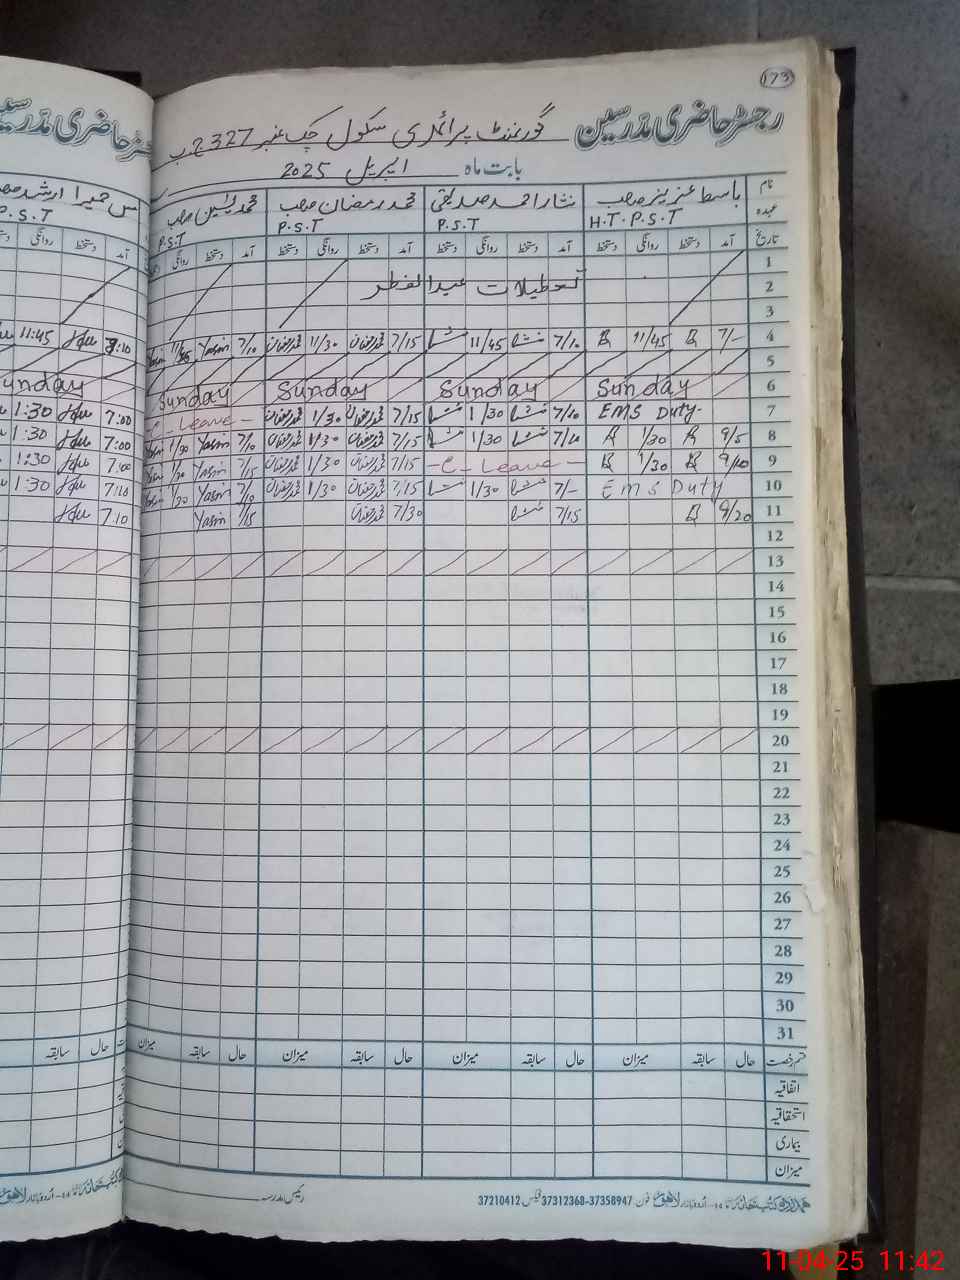 173
رجسٹر حاضری مدرسین گورنمنٹ پرائمری سکول چک نمبر 327 ج ب
بابت ماہ اپریل 2025
نام باسط عزیز صاحب نثار احمد صدیقی محمد رمضان صاحب محمد یٰسین صاحب
عہدہ H.T.P.S.T P.S.T P.S.T P.S.T P.S.T
تاریخ آمد دستخط روانگی دستخط آمد دستخط روانگی دستخط آمد دستخط روانگی دستخط آمد دستخط روانگی آمد دستخط روانگی
1
2 تعطیلات عیدالفطر
3
4 7/- 11/45 7/10 11/45 7/15 محمد رمضان 11/30 محمد رمضان 7/10 Yasin 11:45
5
6 Sunday Sunday Sunday Sunday Sunday
7 EMS Duty- 7/10 1/30 7/15 محمد رمضان 1/30 محمد رمضان Leave - 7:00 1:30
8 9/5 1/30 1/30 7/15 محمد رمضان 1/30 محمد رمضان 7/10 Yasin 1/30 7:00 1:30
9 9/10 1/30 -C- Leave- 7/15 محمد رمضان 1/30 محمد رمضان 7/15 Yasin 1/30 1:30
10 EMS Duty 7/- 1/30 7/15 محمد رمضان 1/30 محمد رمضان 7/10 Yasin 1/30 7:10 1:30
11 9/20 7/15 7/30 محمد رمضان Yasin 7:10
12
13
14
15
16
17
18
19
20
21
22
23
24
25
26
27
28
29
30
31
قسم رخصت حال سابقہ میزان حال سابقہ میزان حال سابقہ میزان حال سابقہ میزان حال سابقہ
اتفاقیہ
استحقاقیہ
بیماری
میزان
اردو بازار لاہور فون 37358947-37312368 فیکس 37210412 رئیس مدرسہ
11-04-25 11:42